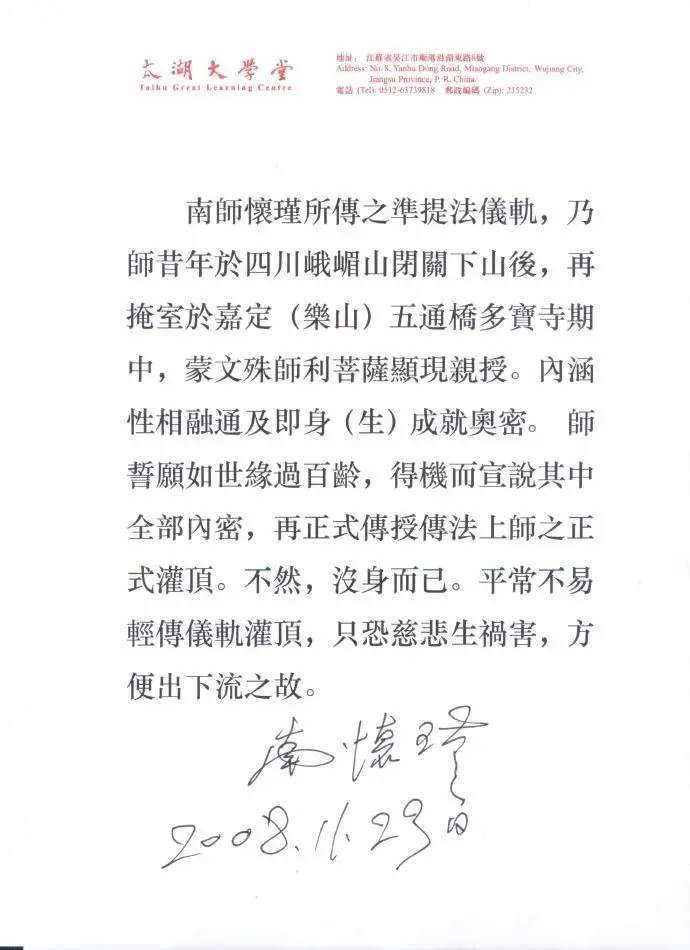 太湖大學堂
Taihu Great Learning Centre
地址： 江蘇省吴江市廟港沿湖東路8號
Address: No. 8, Yanhu Dong Road, Miaogang District, Wujiang City,
Jiangsu Province, P. R. China.
電話 (Tel): 0512-63739818 郵政編碼 (Zip): 215232
南師懷瑾所傳之準提法儀軌，乃
師昔年於四川峨嵋山閉關下山後，再
掩室於嘉定（樂山）五通橋多寶寺期
中，蒙文殊師利菩薩顯現親授。內涵
性相融通及即身（生）成就奧密。 師
誓願如世緣過百齡，得機而宣說其中
全部內密，再正式傳授傳法上師之正
式灌頂。不然，沒身而已。平常不易
輕傳儀軌灌頂，只恐慈悲生禍害，方
便出下流之故。
南懷瑾
2008.11.29日